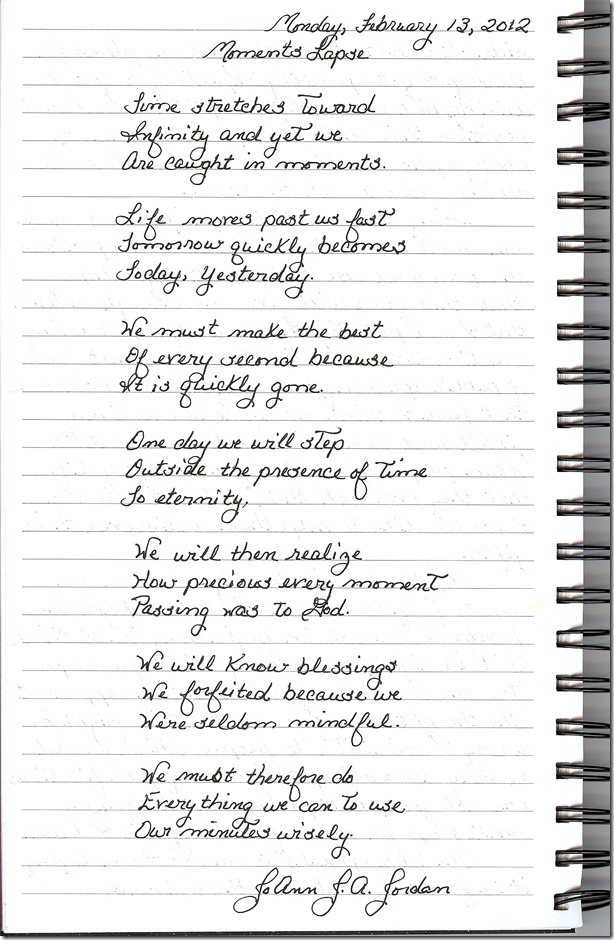 Monday, February 13, 2012
Moments Lapse
Time stretches Toward
Infinity and yet we
Are caught in moments.
Life moves past us fast
Tomorrow quickly becomes
Today, Yesterday.
We must make the best
Of every second because
It is quickly gone.
One day we will step
Outside the presence of Time
To eternity,
We will then realize
How precious every moment
Passing was To God.
We will Know blessings
We forfeited because we
Were seldom mindful.
We must therefore do
Everything we can To use
Our minutes wisely.
JoAnn J. A. Jordan